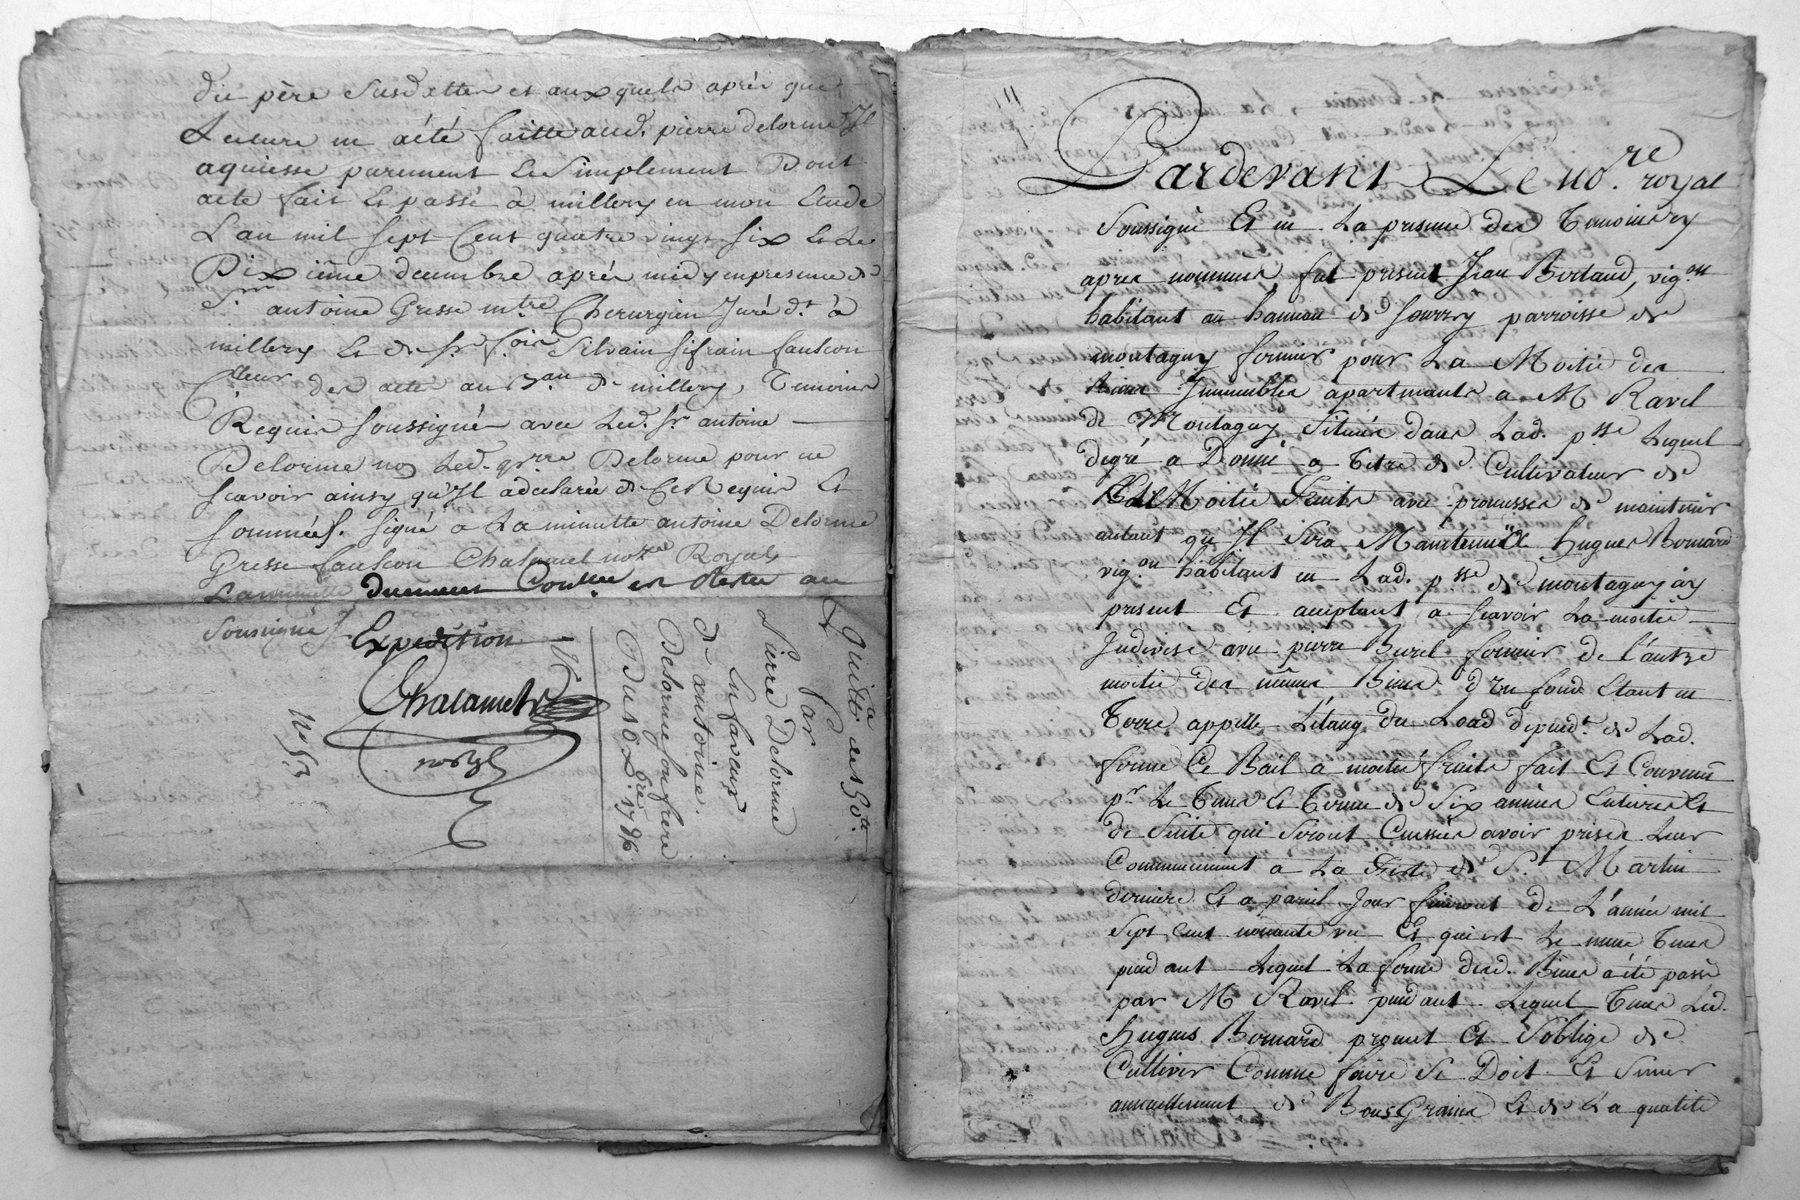 père Susd. et auxquels après que
Lecture en aété faitte aud. pierre delorme Jl
aquiesse purement et Simplement Dont
acte fait et passé à millery en mon Etude
L'an mil Sept Cent quatre vingt six et Le
Dixième decembre après midy en presence de
Sr. antoine Gresse mtre Chirurgien Juré dt. à
millery et de Sr. Silvain faulcon
des acte au de millery, Temoins
Requis Soussignés avec Led. Sr antoine
Delorme non Led. Delorme pour ne
Scavoir ainsy qu'Jl adeclarée de Ce Requis et
Sommés. Signé a La minutte antoine Delorme
Gresse faulcon Chalamel notre Royal
La minutte est Restée au
Soussigné
Expedition
Chalamel
Quitt. de 150
par
Pierre Delorme
En faveur
de antoine
Delorme son frere
Du 10 Xbre. 1786
Pardevant Le no.re royal
Soussigné Et en La presence des Temoins cy
apres nommés, fut present Jean Bertaud, vig.on
habitant au hameau de Sourzy parroisse de
montagny fermier pour La Moitié des
Immeubles apartenants a M Ravel
de Montagny Situés dans Lad. psse Lequel
degré à Donné a titre de Cultivateur de
Moitié Fruits avec promesse de maintenir
autant qu'Jl Sera Maintenu à Hugues Bonnard
vig.on habitant en Lad. psse de montagny icy
present Et acceptant a Scavoir La moitié
Indivise avec pierre Burel fermier de l'autre
moitié des mêmes Biens d'un fond Etant en
Terre appellé L'étang du Load depend.t de Lad.
ferme Ce Bail a moitié fruits fait Et Convenu
pr. Le Tems Et Terme de Six années Entieres Et
de Suite qui Seront Censées avoir prises Leur
Commencement a La Feste de St. Martin
derniere Et a pareil Jour finiront de L'année mil
Sept cent nonante un Et qui est Le meme Tems
pendant Lequel La ferme desd. Biens a été passé
par M Ravel pendant Lequel Tems Led.
Hugues Bonnard promet Et S'oblige de
Cultiver Comme faire Se Doit Et Semer
annuellement de Bons Grains Et de La qualité